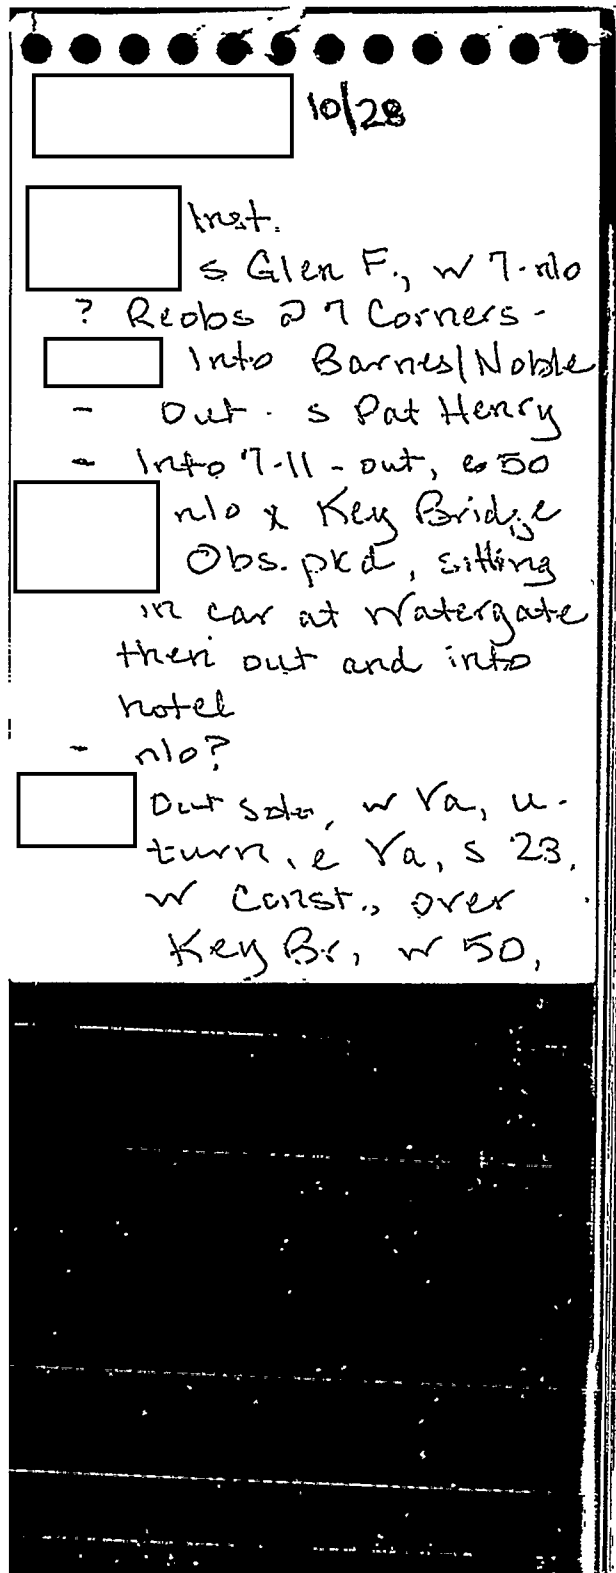 10/28
Inst.
s Glen F., w 7-nlo
? Reobs @ 7 Corners -
Into Barnes/Noble
- Out - s Pat Henry
- Into 7-11 - out, e 50
nlo x Key Bridge
Obs. pkd, sitting
in car at Watergate
then out and into
hotel
- nlo?
Out solo, w Va, u-
turn, e Va, s 23,
w Const., over
Key Br, w 50,